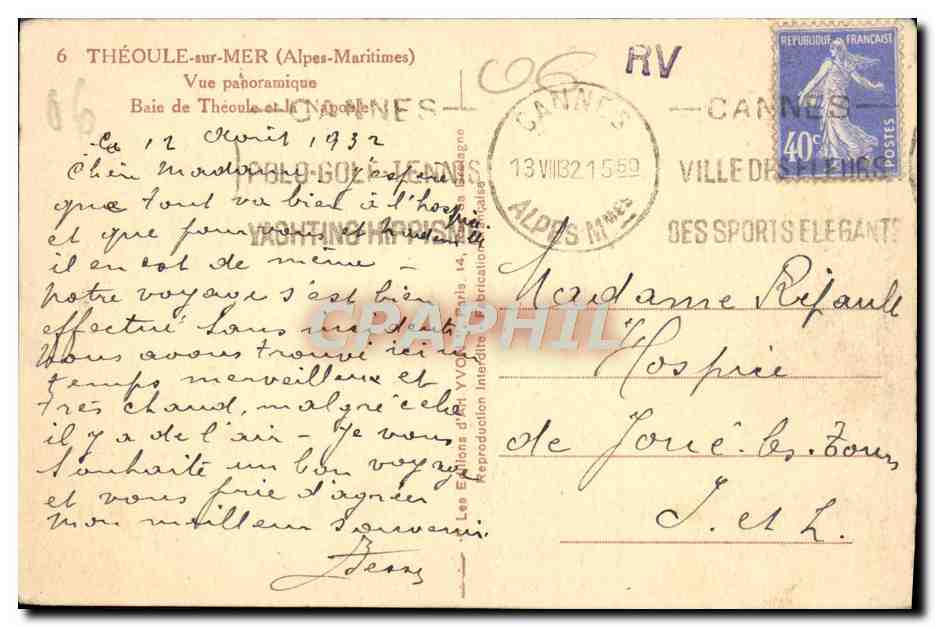 6 THÉOULE-sur-MER (Alpes-Maritimes)
Vue panoramique
Baie de Théoule et la Napoule
06
06
RV
REPUBLIQUE FRANÇAISE
40c
POSTES
CANNES
13 VIII 32 15 50
ALPES Mmes
CANNES
POLO-GOLF-TENNIS
YACHTING HIPPISME
CANNES
VILLE DES FLEURS
DES SPORTS ELEGANTS
Ce 12 Août 1932
Chère Madame, j'espère
que tout va bien à l'hospice
et que pour vous et
il en est de même -
notre voyage s'est bien
effectué sans incidents
nous avons trouvé ici un
temps merveilleux et
très chaud, malgré cela
il y a de l'air - Je vous
souhaite un bon voyage
et vous prie d'agréer
mon meilleur souvenir.
Les Editions d'Art YVON, Paris, 14,
Reproduction Interdite Fabrication Française
Madame Rifault
Hospice
de Joué-les-Tours
I. et L.
CPAPHIL